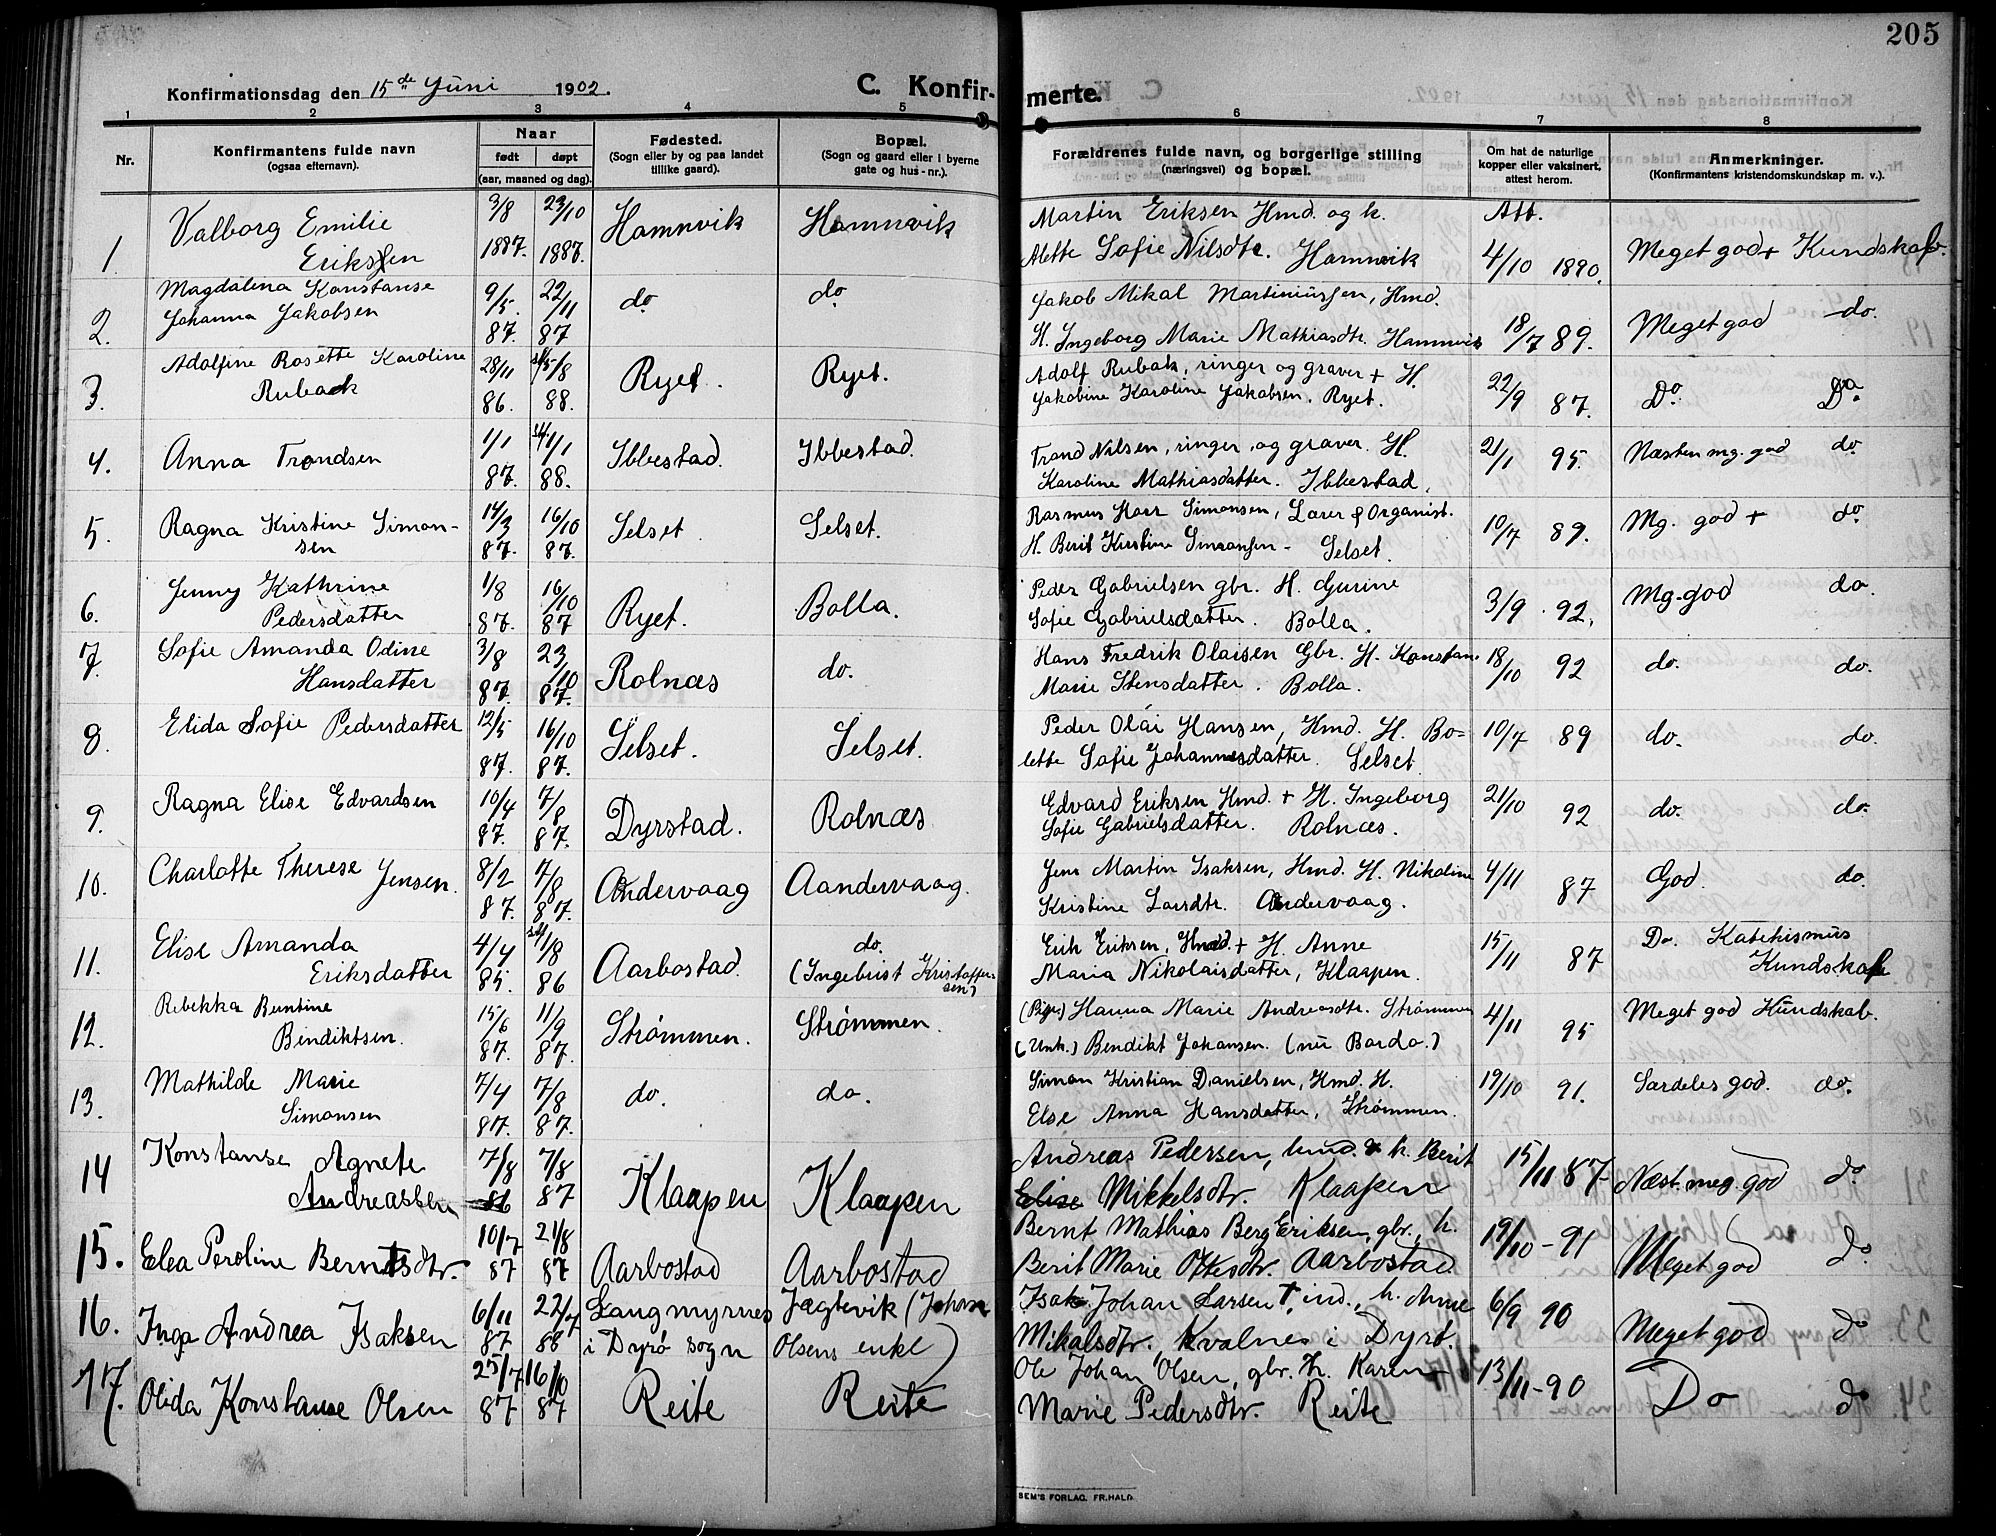 205
Konfirmationsdag den 15de Juni 1902.
C. Konfirmerte.
1 2 3 4 5 6 7 8
Nr.
Konfirmantens fulde navn
(ogsaa efternavn).
Naar
født døpt
(aar, maaned og dag).
Fødested.
(Sogn eller by og paa landet
tillike gaard).
Bopæl.
(Sogn og gaard eller i byerne
gate og hus-nr.).
Forældrenes fulde navn, og borgerlige stilling
(næringsvei) og bopæl.
Om hat de naturlige
kopper eller vaksinert,
attest herom.
Anmerkninger.
(Konfirmantens kristendomskundskap m. v.).
Valborg Emilie 3/8 23/10 Hamnvik Hamnvik Martin Eriksen Hmd. og h. Att.
1 Eriksen 1887. 1887. Alette Sofie Nilsdtr. Hamnvik 4/10 1890. Meget god + Kundskab.
Magdalena Konstanse 9/5. 22/11 do. do. Jakob Mikal Martiniussen, Hmd.
2. Johanna Jakobsen 87. 87 H. Ingeborg Marie Mathiasdtr. Hamnvik 18/7 89. Meget god do.
Adolfine Rosette Karoline 28/11 5/8 Ryet. Ryet. Adolf Rubak, ringer og graver + H.
3. Ruback 86. 88. Jakobine Karoline Jakobsen. Ryet. 22/9 87. Do. Do.
4. Anna Trondsen 1/1 1/1 Ibbestad. Ibbestad. Trond Nilsen, ringer og graver. H. 21/1 95. Næsten mg. god do.
87. 88. Karoline Mathiasdatter. Ibbestad.
5. Ragna Kristine Simon- 14/3 16/10 Selset. Selset. Rasmus Simonsen, Lærer & Organist. 10/7 89. Mg. god + do.
sen 87. 87. H. Berit Kirstine Simonsen - Selset.
Jenny Kathrine 1/8 16/10 Ryet. Bolla. Peder Gabrielsen gbr. H. Gurine 3/9. 92. Mg. god do.
6. Pedersdatter 87. 87 Sofie Gabrielsdatter. Bolla.
7. Sofie Amanda Odine 3/8 23/10 Rolnæs do. Hans Fredrik Olaisen Gbr. H. Konstan. 18/10 92 do. do.
Hansdatter 87. 87. Marie Stensdatter. Bolla.
8. Elida Sofie Pedersdatter 12/5 16/10 Selset. Selset. Peder Olai Hansen, Hmd. H. Bo= 10/7 89 do. do.
87. 87. lette Sofie Johannesdatter. Selset
9. Ragna Elise Edvardsen 10/4 7/8 Dyrstad. Rolnæs Edvard Eriksen Hmd. + H. Ingeborg 21/10 92 do. do.
87. 87. Sofie Gabrielsdatter. Rolnæs.
10. Charlotte Therese Jensen. 8/2 7/8 Aandervaag Aandervaag. Jens Martin Isaksen, Hmd. H. Nikoline 4/11 87 God. do.
87. 87. Kristine Larsdtr. Aandervaag.
Elise Amanda 4/4 1/8 Aarbostad. do. Erik Eriksen, Hmd. + H. Anne 15/11 87 Do. Katekismus
11. Eriksdatter 85. 86 (Ingebrist Kristoffer- Maria Nikolaisdatter, Klaapen. Kundskab
sen)
Rebekka Berntine 15/6 11/9 Strømmen. Strømmen. (Pige) Hanna Marie Andreasdtr. Strømmen 4/11 95 Meget god Kundskab.
12. Bendiktsen. 87. 87. (Unk.) Bendikt Johansen. (nu Bardo.)
Mathilde Marie 7/4 7/8 do. do. Simon Kristian Danielsen, Hmd. H. 19/10 91. Særdeles god. do.
13. Simonsen 87. 87. Else Anna Hansdatter, Strømmen.
14 Konstanse Agnete 7/8 7/8 Klaapen Klaapen Andreas Pedersen, hmd. & h. Berit 15/11 87- Næst. meg. god do
Andreassen 86 87 Elise Mikkelsdtr. Klaapen
15. Elea Peroline Berntsdtr. 10/7 21/8 Aarbostad Aarbostad Bernt Mathias Berg Eriksen, gbr., h. 19/10 - 91 Meget god do
87 87 Berit Marie Ottesdtr. Aarbostad.
16. Inga Andrea Isaksen 6/11 22/7 Langmyrnes Jægtevik (Johan Isak Johan Larsen †, ind., h. Anne 6/9 90 Meget god do
87 88 i Dyrø sogn Olsens enke) Mikalsdtr. Kvalnes i Dyrø.
17. Olida Konstanse Olsen 25/7 16/10 Reite Reite Ole Johan Olsen, gbr. h. Karen 13/11 - 90 Do do
87 87 Marie Pedersdtr. Reite
SEM'S FORLAG. FR.HALD.